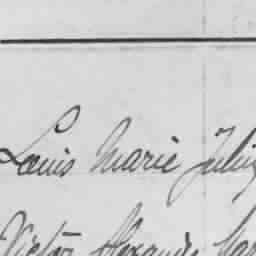 Louis Marie Julien
Victor Alexandre Mar